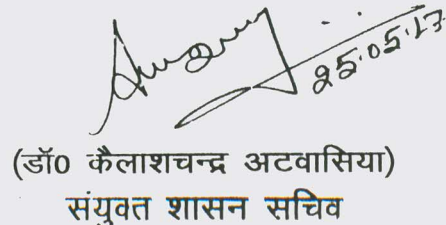 25.05.17
(डॉ0 कैलाशचन्द्र अटवासिया)
संयुक्त शासन सचिव